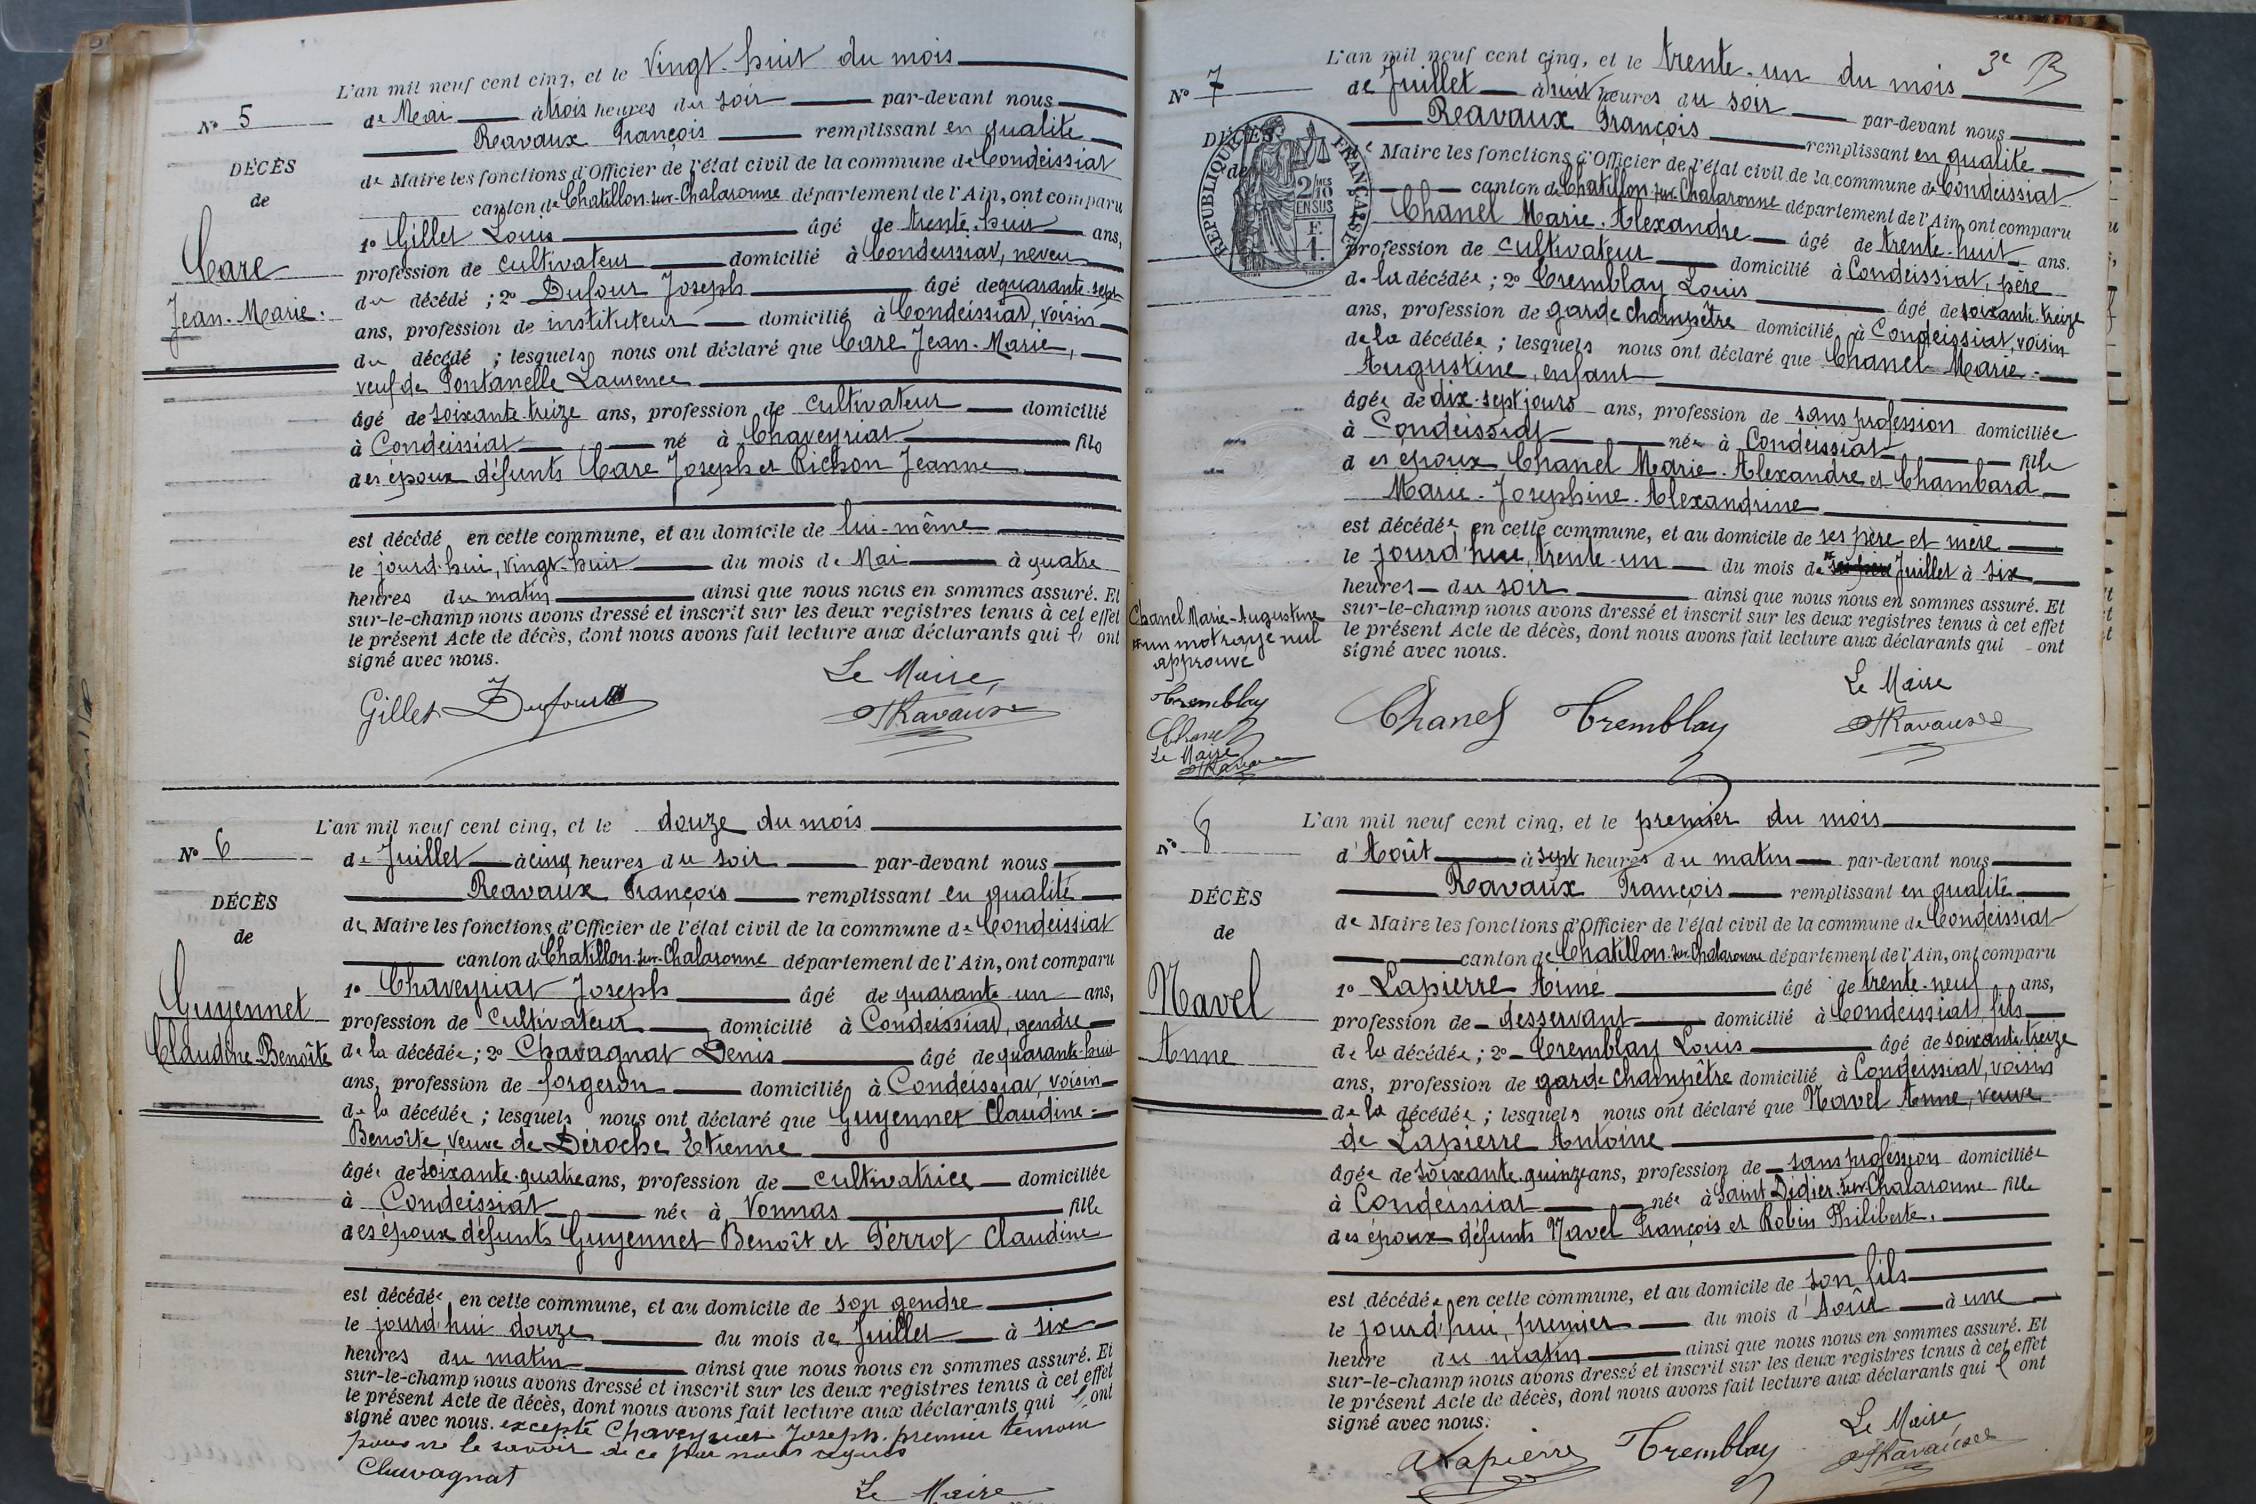 L'an mil neuf cent cinq, et le vingt-huit du mois
N° 5
de Mai à trois heures du soir par-devant nous
Ravaux François remplissant en qualité
DÉCÈS
de Maire les fonctions d'Officier de l'état civil de la commune de Condeissiat
de
canton de Chatillon-sur-Chalaronne département de l'Ain, ont comparu
1° Gillet Louis âgé de trente-huit ans,
Care
profession de cultivateur domicilié à Condeissiat, neveu
Jean-Marie.
du décédé ; 2° Dufour Joseph âgé de quarante-sept
ans, profession de instituteur domicilié à Condeissiat, voisin
du décédé ; lesquels nous ont déclaré que Care Jean-Marie,
veuf de Fontanelle Laurence
âgé de soixante-treize ans, profession de cultivateur domicilié
à Condeissiat né à Chaveyriat fils
des époux défunts Care Joseph et Richon Jeanne
est décédé en cette commune, et au domicile de lui-même
le jourd'hui, vingt-huit du mois de Mai à quatre
heures du matin ainsi que nous nous en sommes assuré. Et
sur-le-champ nous avons dressé et inscrit sur les deux registres tenus à cet effet
le présent Acte de décès, dont nous avons fait lecture aux déclarants qui l' ont
signé avec nous.
Le Maire,
Gillet Dufour Ravaux
L'an mil neuf cent cinq, et le douze du mois
N° 6
de Juillet à cinq heures du soir par-devant nous
Ravaux François remplissant en qualité
DÉCÈS
de Maire les fonctions d'Officier de l'état civil de la commune de Condeissiat
de
canton de Chatillon-sur-Chalaronne département de l'Ain, ont comparu
1° Chaveyriat Joseph âgé de quarante-un ans,
Guyennet
profession de cultivateur domicilié à Condeissiat, gendre
Claudine-Benoîte
de la décédée ; 2° Chavagnat Denis âgé de quarante-huit
ans, profession de forgeron domicilié à Condeissiat, voisin
de la décédée ; lesquels nous ont déclaré que Guyennet Claudine-
Benoîte, veuve de Déroche Etienne
âgée de soixante-quatre ans, profession de cultivatrice domiciliée
à Condeissiat née à Vonnas fille
des époux défunts Guyennet Benoît et Perrot Claudine
est décédée en cette commune, et au domicile de son gendre
le jourd'hui douze du mois de Juillet à six
heures du matin ainsi que nous nous en sommes assuré. Et
sur-le-champ nous avons dressé et inscrit sur les deux registres tenus à cet effet
le présent Acte de décès, dont nous avons fait lecture aux déclarants qui l'ont
signé avec nous. excepté Chaveyriat Joseph, premier témoin
pour ne le savoir de ce par nous requis
Chavagnat
Le Maire
3e
L'an mil neuf cent cinq, et le trente-un du mois
N° 7
de Juillet à huit heures du soir par-devant nous
Ravaux François remplissant en qualité
DÉCÈS
de
RÉPUBLIQUE FRANÇAISE
2/10 EN SUS
F. 1.
de Maire les fonctions d'Officier de l'état civil de la commune de Condeissiat
canton de Chatillon-sur-Chalaronne département de l'Ain, ont comparu
Chanel Marie-Alexandre âgé de trente-huit ans.
profession de cultivateur domicilié à Condeissiat, père
de la décédée ; 2° Tremblay Louis âgé de soixante-treize
ans, profession de garde champêtre domicilié à Condeissiat, voisin
de la décédée ; lesquels nous ont déclaré que Chanel Marie-
Augustine, enfant
âgée de dix-sept jours ans, profession de sans profession domiciliée
à Condeissiat née à Condeissiat fille
des époux Chanel Marie-Alexandre et Chambard
Marie-Josephine-Alexandrine
est décédée en cette commune, et au domicile de ses père et mère
le jourd'hui, trente-un du mois de Juillet à six
heures du soir ainsi que nous nous en sommes assuré. Et
sur-le-champ nous avons dressé et inscrit sur les deux registres tenus à cet effet
le présent Acte de décès, dont nous avons fait lecture aux déclarants qui ont
signé avec nous.
Chanel Marie-Augustine
un mot rayé nul
approuvé
Tremblay
Chanel
Le Maire
Ravaux
Le Maire
Chanel Tremblay Ravaux
L'an mil neuf cent cinq, et le premier du mois
N° 8
d'Août à sept heures du matin par-devant nous
Ravaux François remplissant en qualité
DÉCÈS
de Maire les fonctions d'Officier de l'état civil de la commune de Condeissiat
de
canton de Chatillon-sur-Chalaronne département de l'Ain, ont comparu
1° Lapierre Aimé âgé de trente-neuf ans,
Navel
profession de desservant domicilié à Condeissiat, fils
Anne
de la décédée ; 2° Tremblay Louis âgé de soixante-treize
ans, profession de garde champêtre domicilié à Condeissiat, voisin
de la décédée ; lesquels nous ont déclaré que Navel Anne, veuve
de Lapierre Antoine
âgée de soixante-quinze ans, profession de sans profession domiciliée
à Condeissiat née à Saint Didier-sur-Chalaronne fille
des époux défunts Navel François et Robin Philiberte.
est décédée en cette commune, et au domicile de son fils
le jourd'hui, premier du mois d'Août à une
heure du matin ainsi que nous nous en sommes assuré. Et
sur-le-champ nous avons dressé et inscrit sur les deux registres tenus à cet effet
le présent Acte de décès, dont nous avons fait lecture aux déclarants qui l' ont
signé avec nous.
Le Maire
A Lapierre Tremblay Ravaux